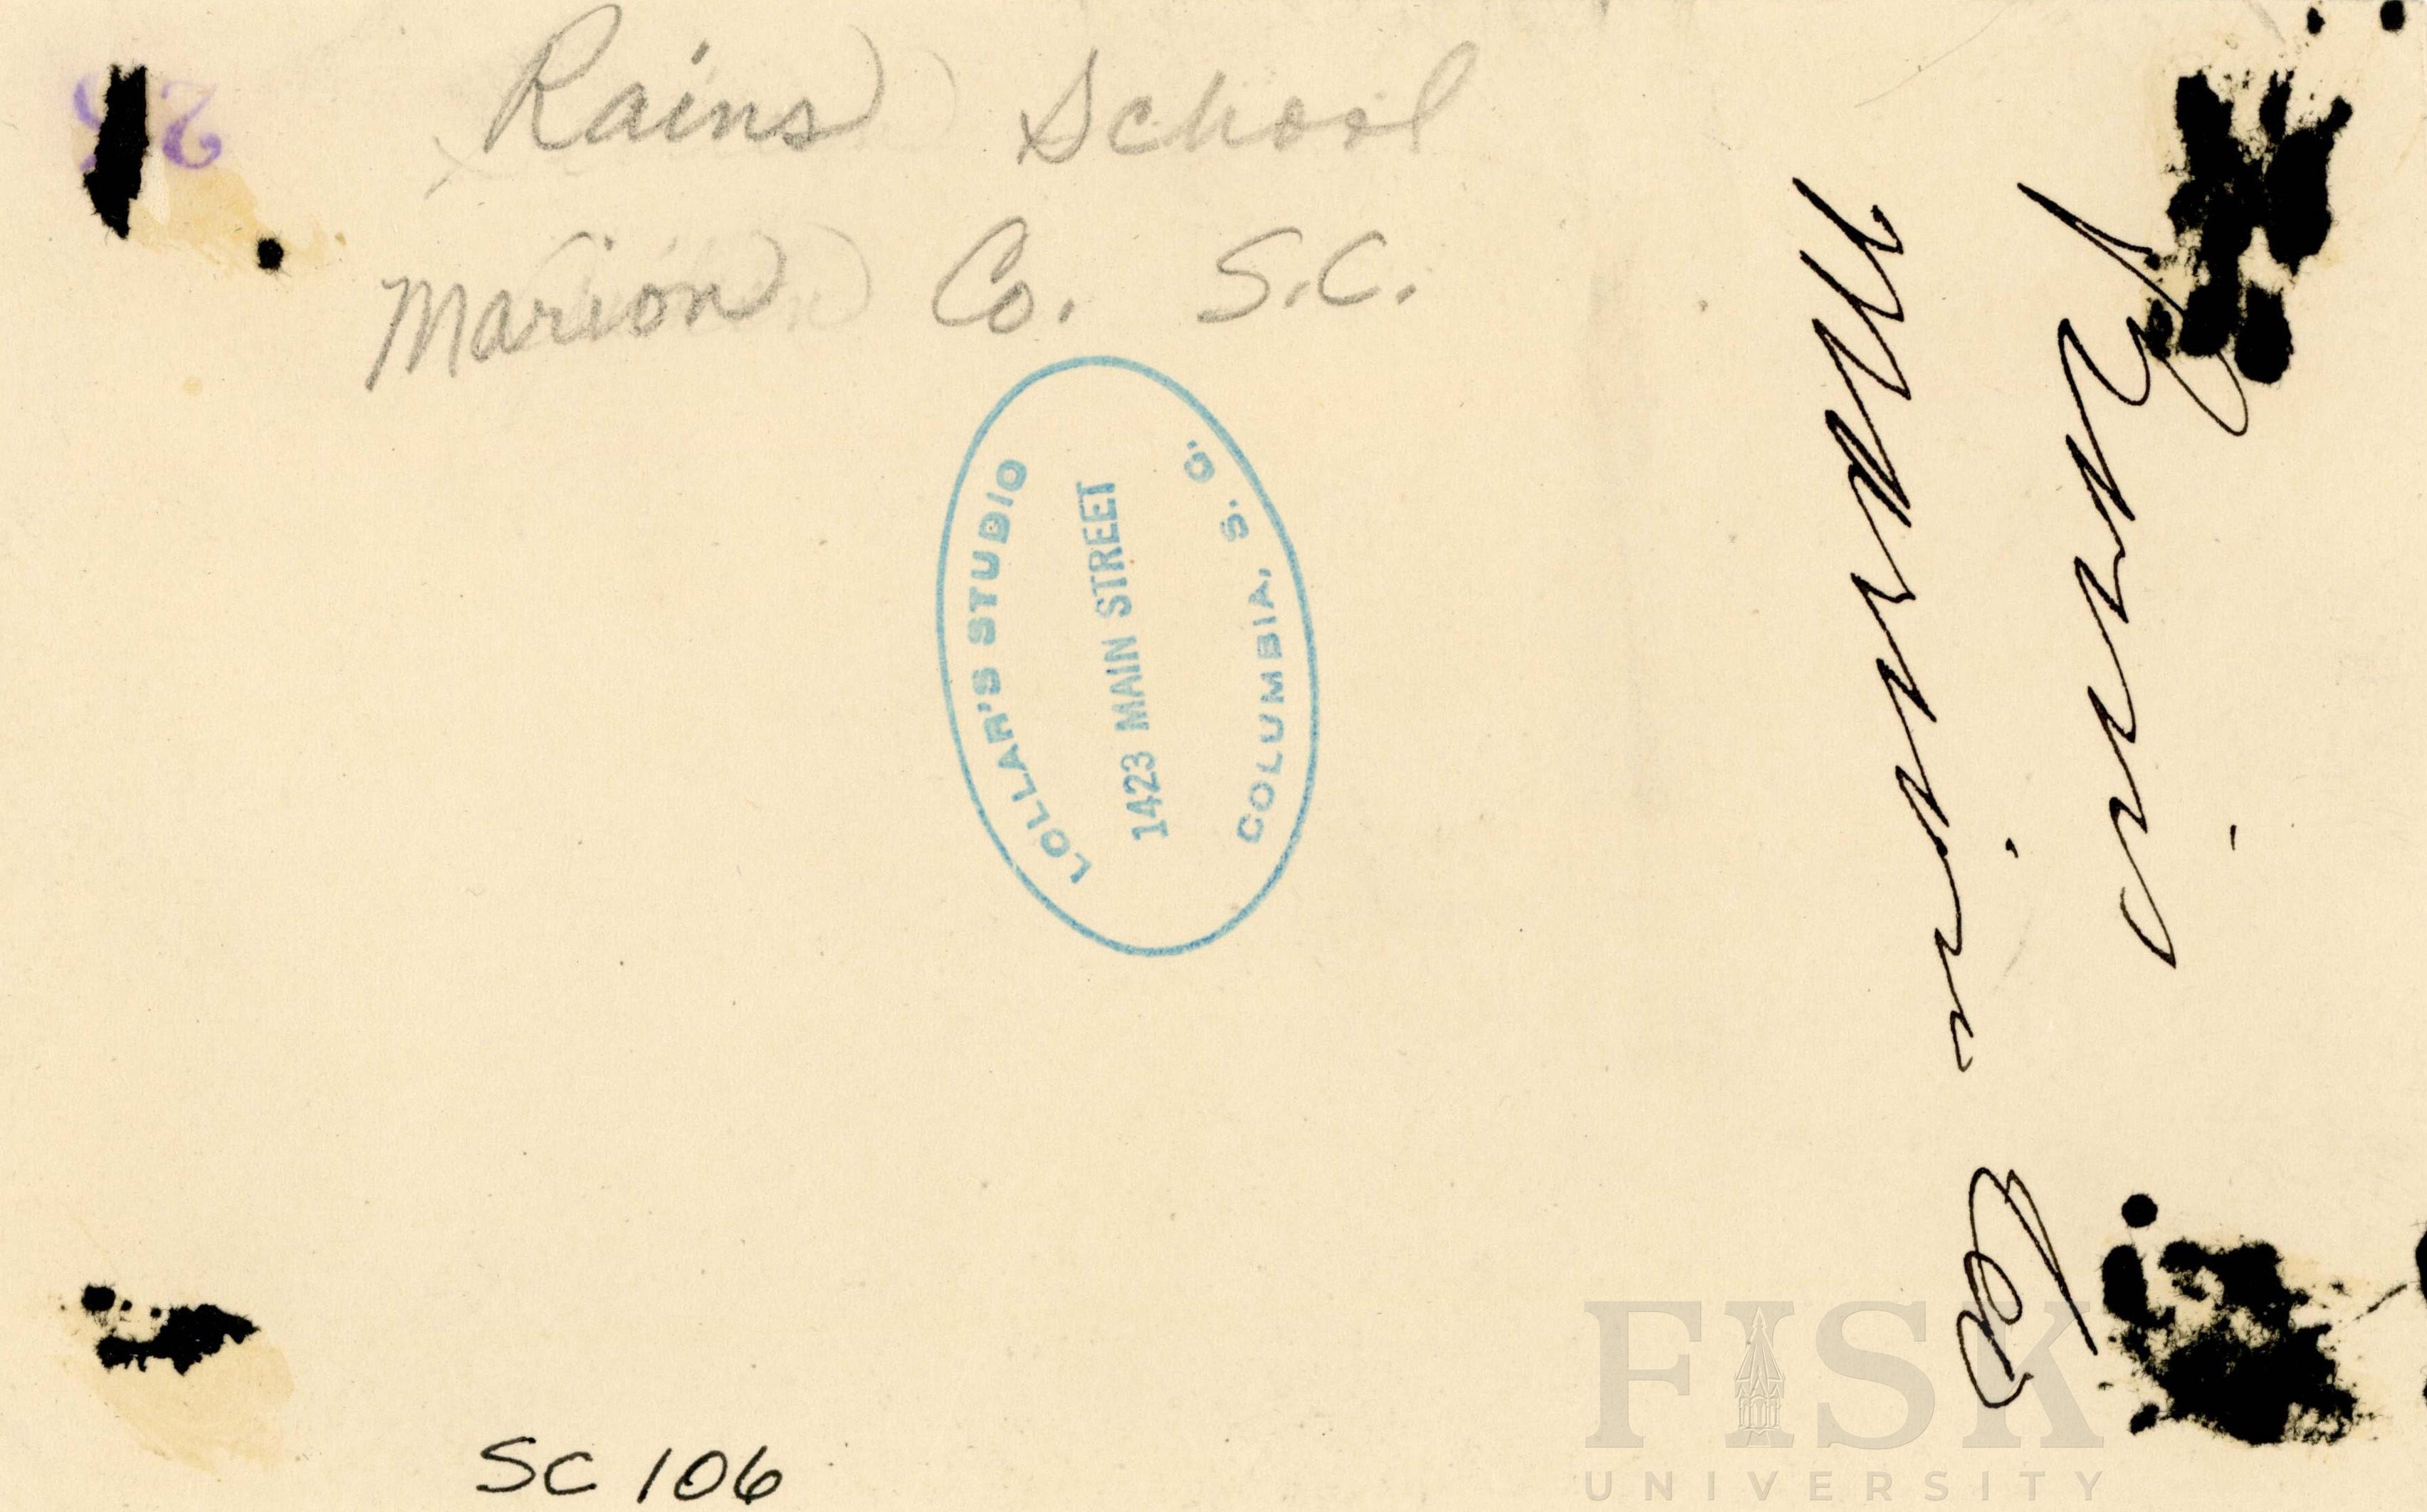 Rains School
Marion Co. S.C.
LOLLAR'S STUDIO
1423 MAIN STREET
COLUMBIA, S. C.
Rains
Marion Co
SC 106
FISK
UNIVERSITY